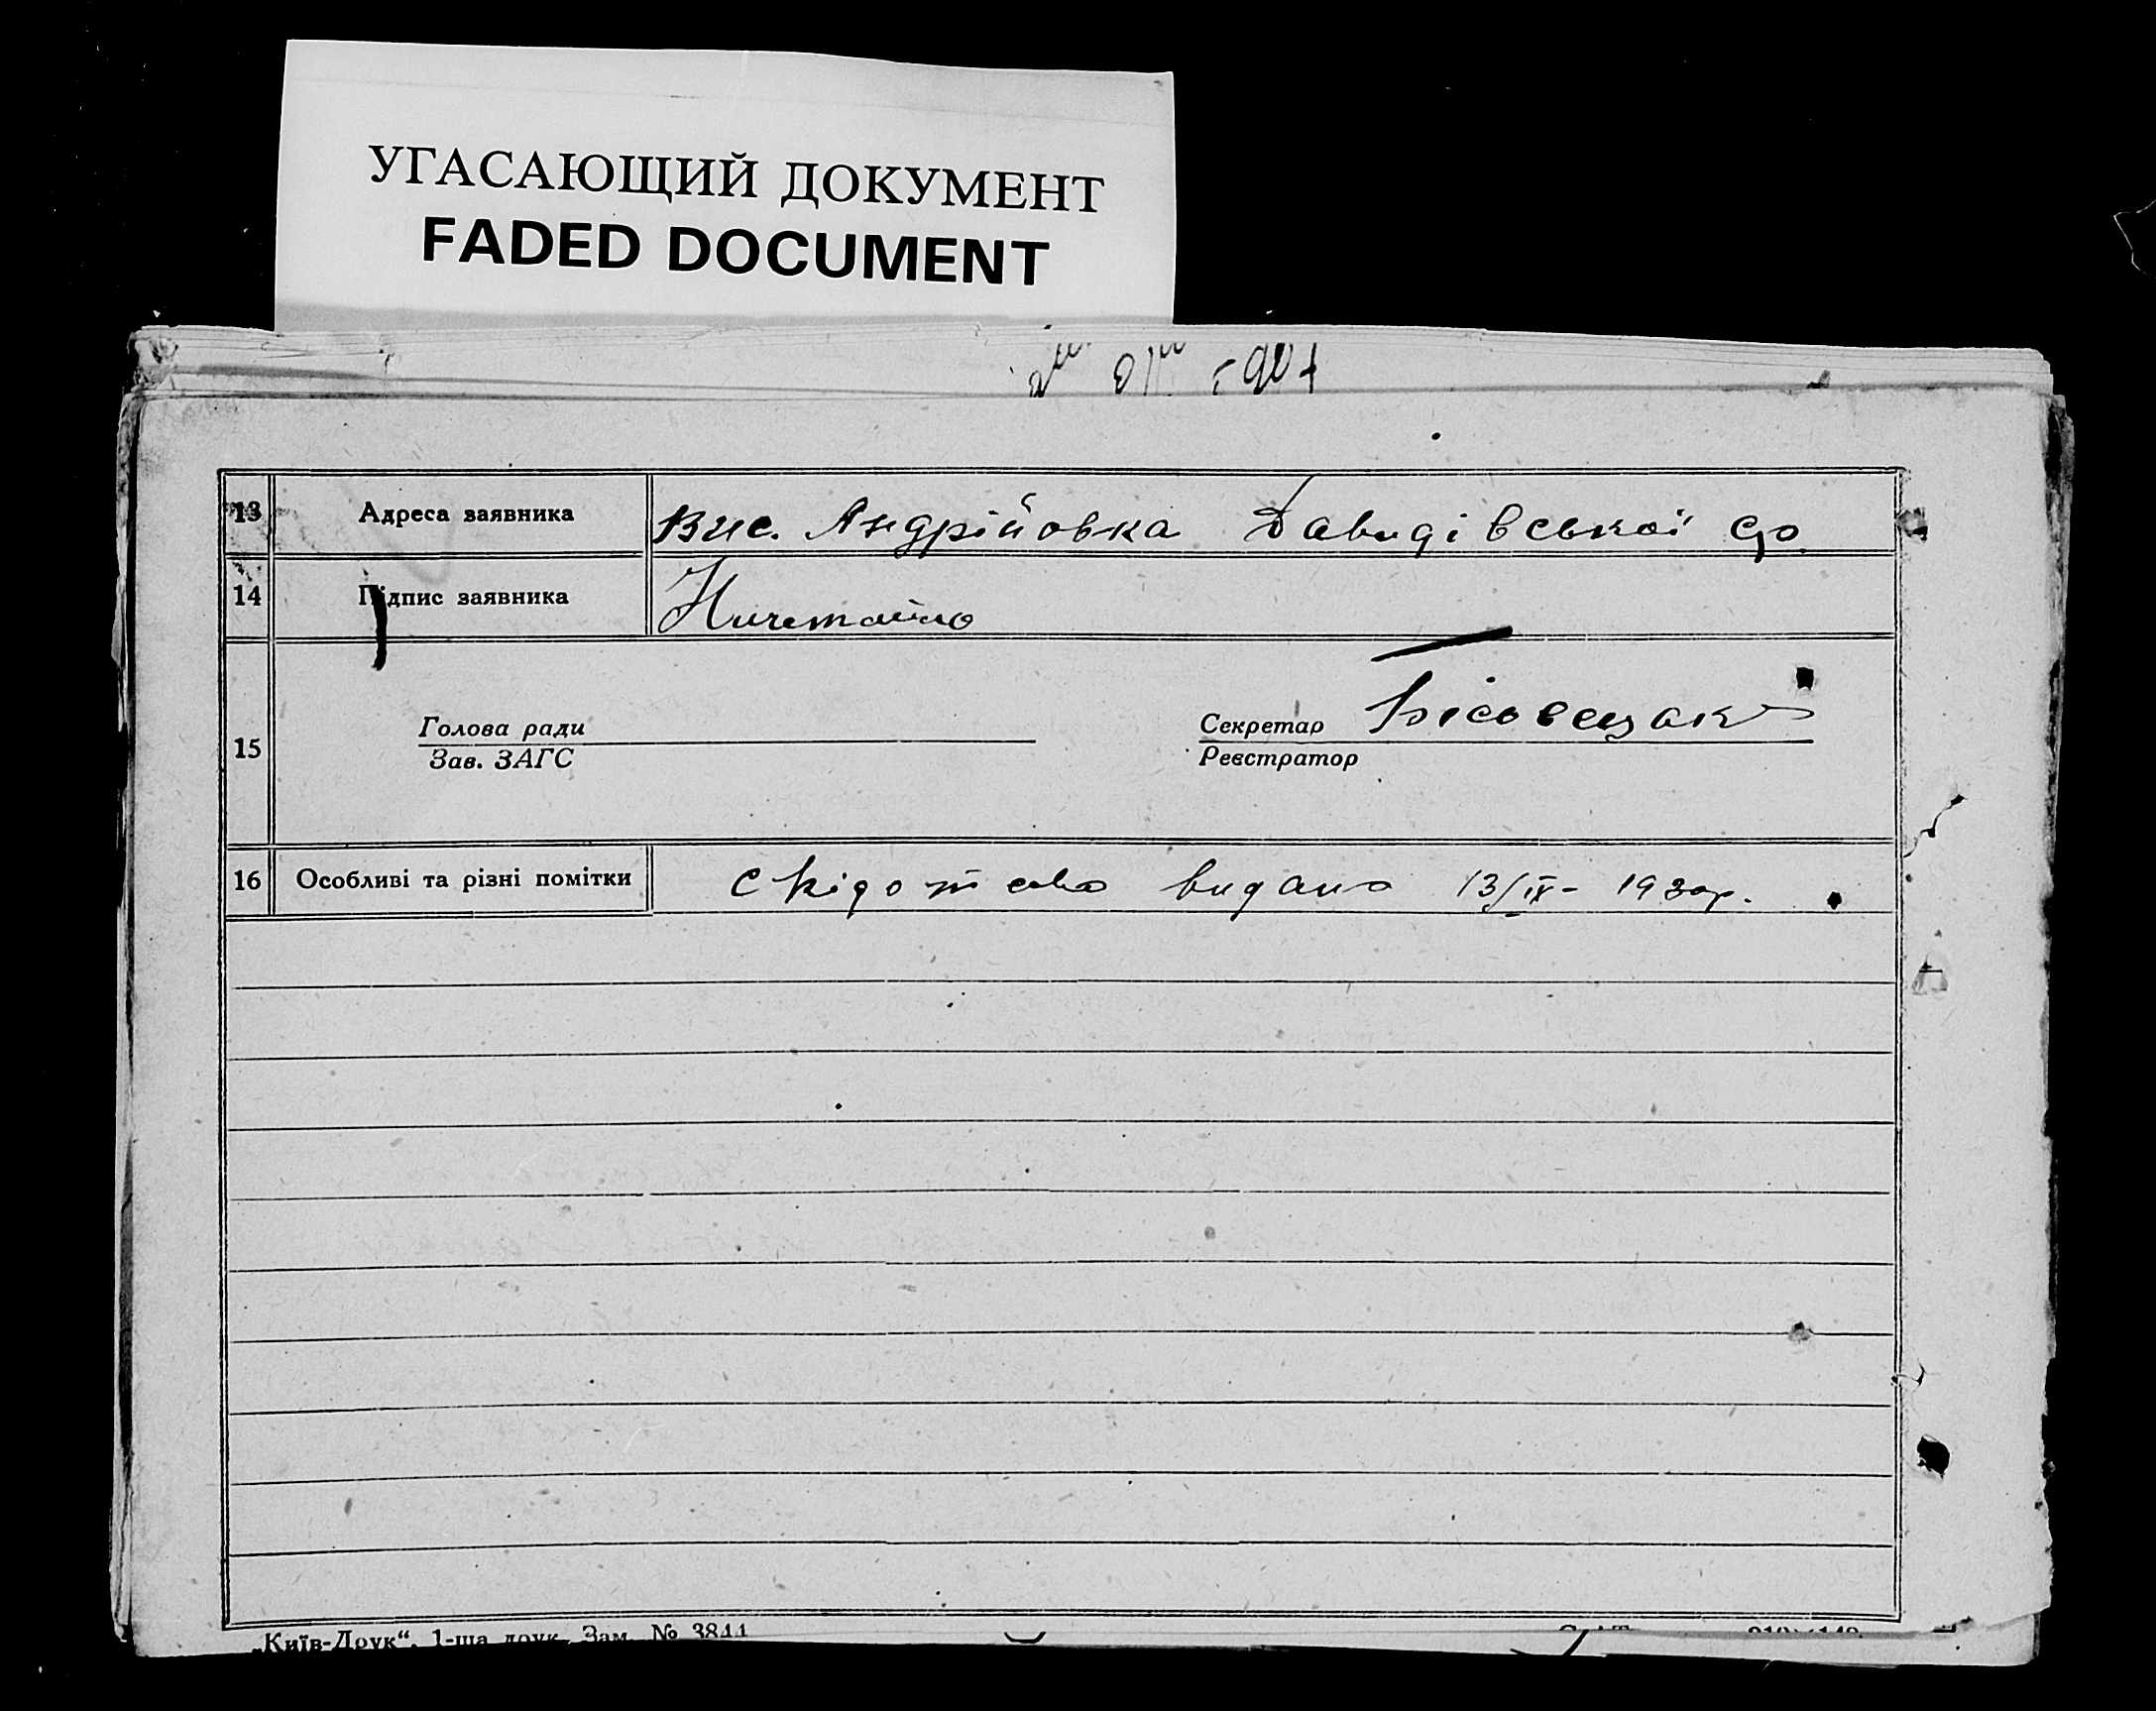 УГАСАЮЩИЙ ДОКУМЕНТ
FADED DOCUMENT
13 Адреса заявника Вис. Андрійовка Давидівської с/р
14 Підпис заявника Ничетайло
Голова ради Секретар
15 Зав. ЗАГС Реєстратор
16 Особливі та різні помітки Свідотство видано 13/IX- 1930р.
„Київ-Друк“, 1-ша друк. Зам. № 3844